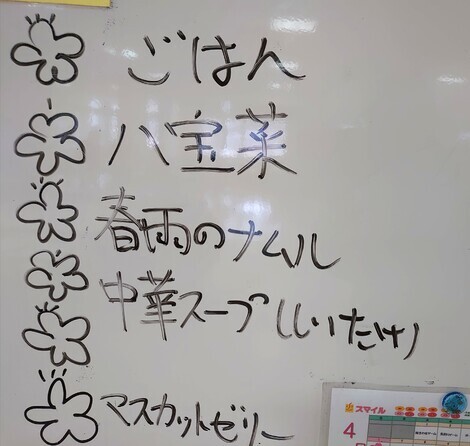 ごはん
八宝菜
春雨のナムル
中華スープ(しいたけ)
マスカットゼリー
スマイル
4